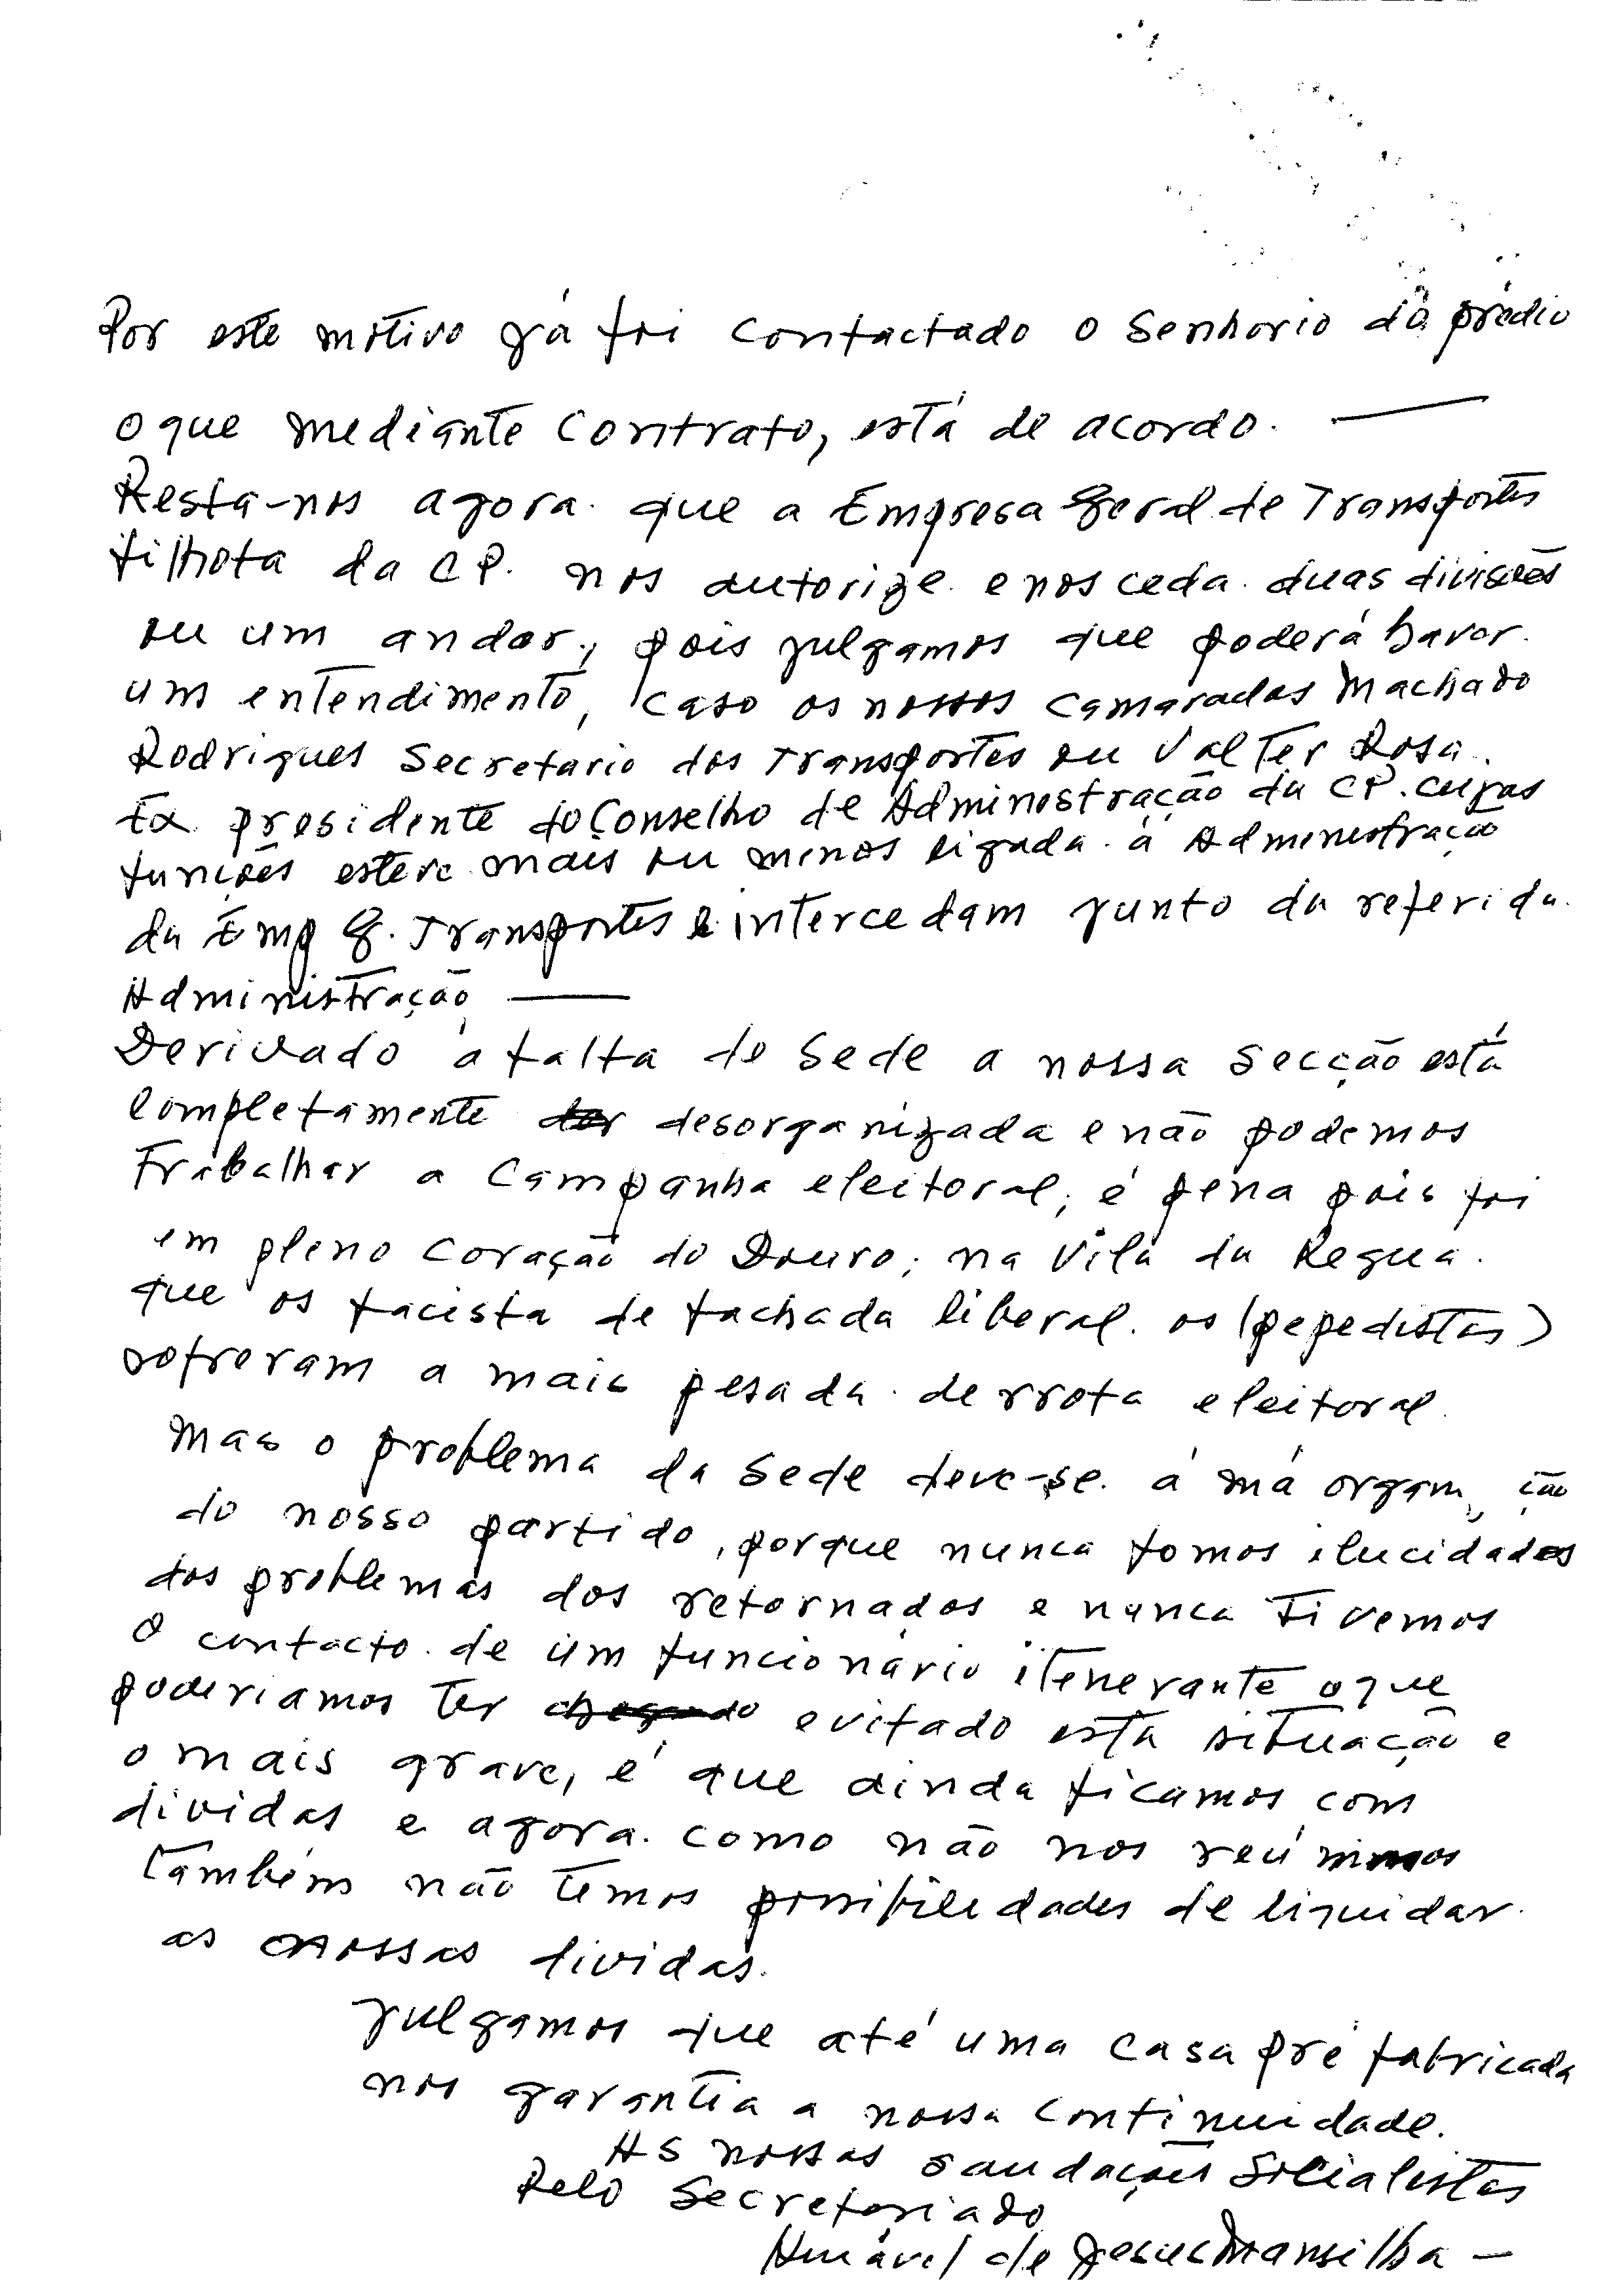 Por este motivo já foi contactado o Senhorio do prédio
o que mediante contrato, está de acordo. —
Resta-nos agora. que a Empresa Geral de Transportes
filhota da C P. nos autorize. e nos ceda. duas divisões
ou um andar, pois julgamos que poderá haver.
um entendimento, caso os nossos camaradas Machado
Rodrigues Secretario dos Transportes ou Valter Rosa.
Ex presidente do Conselho de Administração da CP. cujas
funções esteve mais ou menos ligada. á Administração
da Emp G. Transportes intercedam junto da referida.
Administração —
Derivado á falta de Sede a nossa Secção está
completamente desorganizada e não podemos
Trabalhar a Campanha eleitoral, é pena pois foi
em pleno coração do Douro, na Vila da Regua.
que os facista de fachada liberal. os (pepedistas)
sofreram a mais pesada. derrota eleitoral.
Mas o problema da Sede deve-se. á má organi ção
do nosso partido, porque nunca fomos ilucidados
dos problemas dos retornados e nunca Tivemos
O contacto. de um funcionário itenerante o que
poderiamos Ter evitado esta situação e
o mais grave, é que ainda ficamos com
dividas e agora. como não nos reúnimos
Também não temos possibilidades de liquidar.
as nossas dividas.
julgamos que até uma casa pré fabricada
nos garantia a nossa continuidade.
As nossas saudações Socialistas
Pelo Secretariado
de Jesus Mansilha —